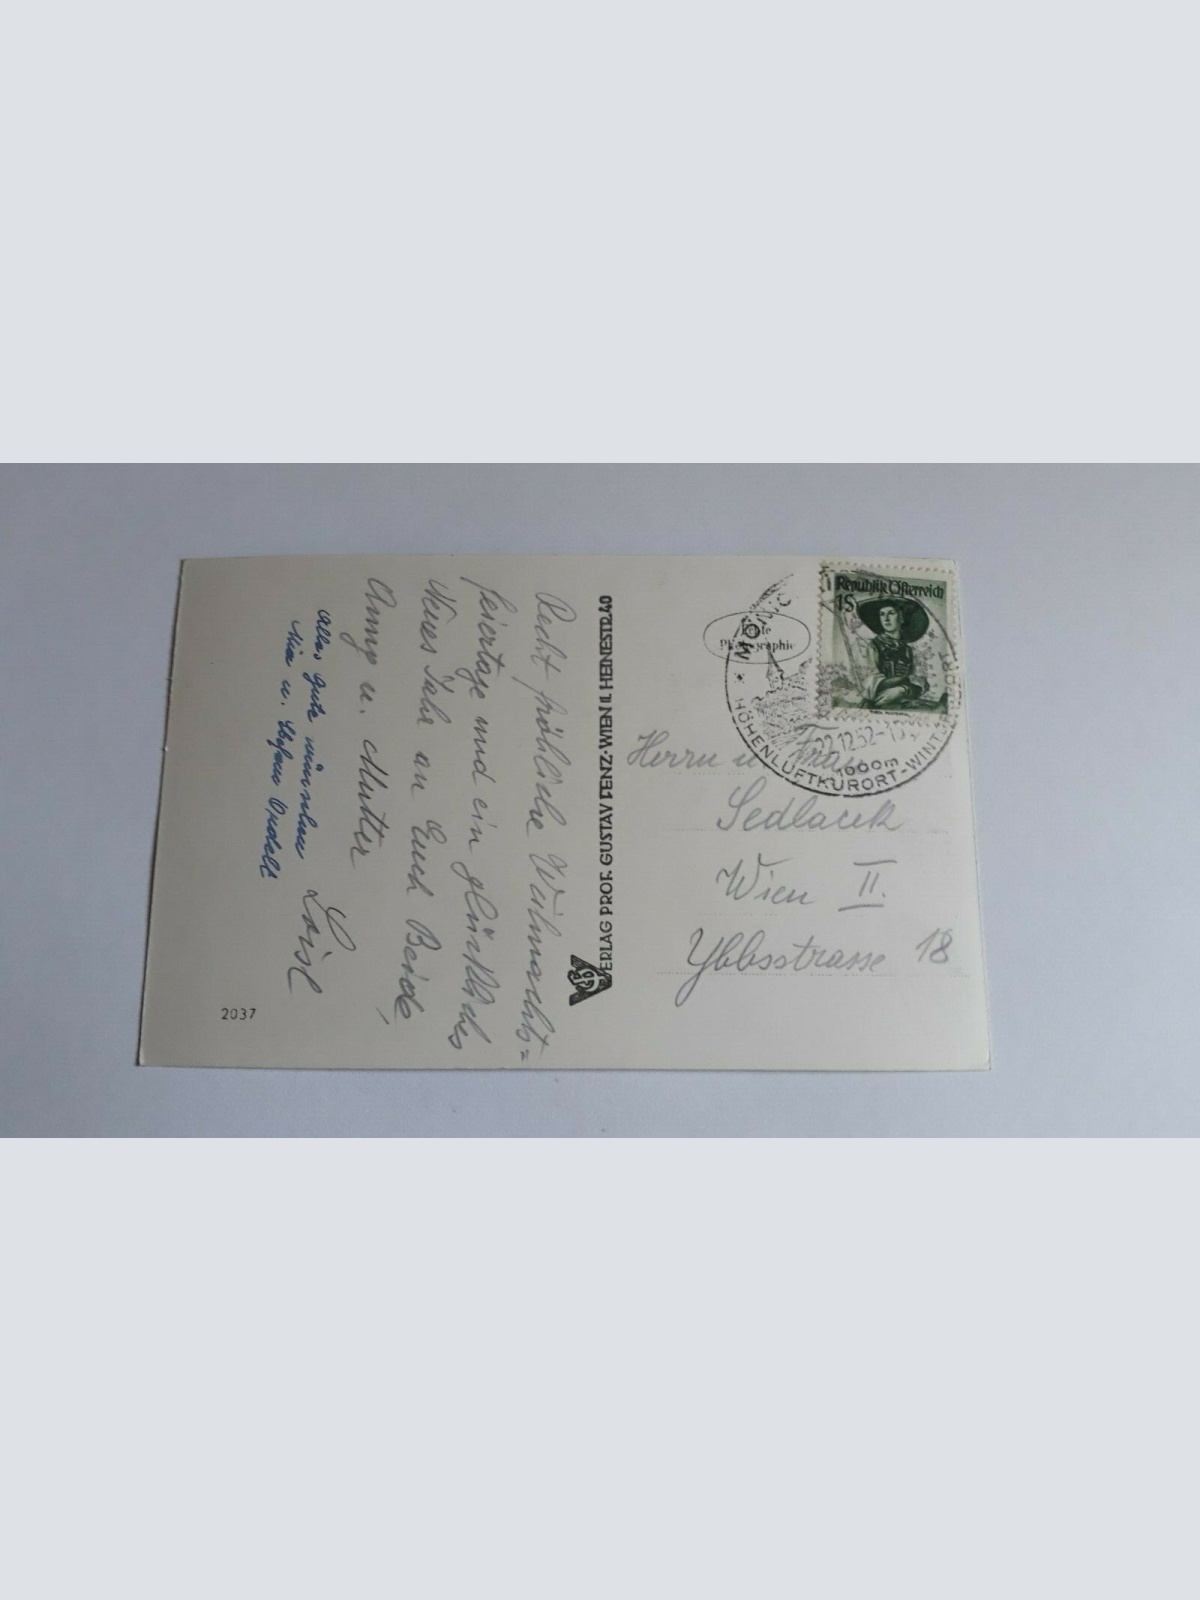 Recht fröhliche Weihnachts=
feiertage und ein glückliches
Neues Jahr an Euch Beide,
u. Mutter
Loisl
Alles gute wünschen
u.
2037
VERLAG PROF. GUSTAV FENZ·WIEN II. HEINESTR.40
Echte
Photographie
Republik Österreich
1S
* MÖNIC
HÖHENLUFTKURORT-WINTERSPORT
22.12.52-15
1000m
Herrn u. Frau
Sedlacek
Wien II.
Ybbsstrasse 18